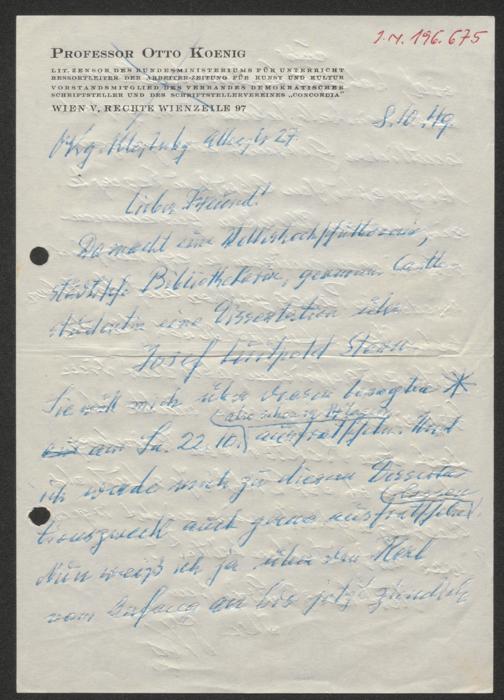 I.N. 196.675
PROFESSOR OTTO KOENIG
LIT. ZENSOR DES BUNDESMINISTERIUMS FÜR UNTERRICHT
RESSORTLEITER DER ARBEITER-ZEITUNG FÜR KUNST UND KULTUR
VORSTANDSMITGLIED DES VERBANDES DEMOKRATISCHER
SCHRIFTSTELLER UND DES SCHRIFTSTELLERVEREINES „CONCORDIA"
WIEN V, RECHTE WIENZEILE 97
8.10.49.
27
Lieber Freund!
Da macht eine
Bibliothekarin,
studentin eine Dissertation über
Josef Luitpold Stern
Sie will mich über diesen besagten *
am Sa. 22.10. ausfratscheln. Und
ich werde mich zu diesem Disserta-
tionszweck auch gerne ausfratscheln
lassen
Nun weiß ich ja über den Kerl
vom Anfang an bis jetzt ziemlich